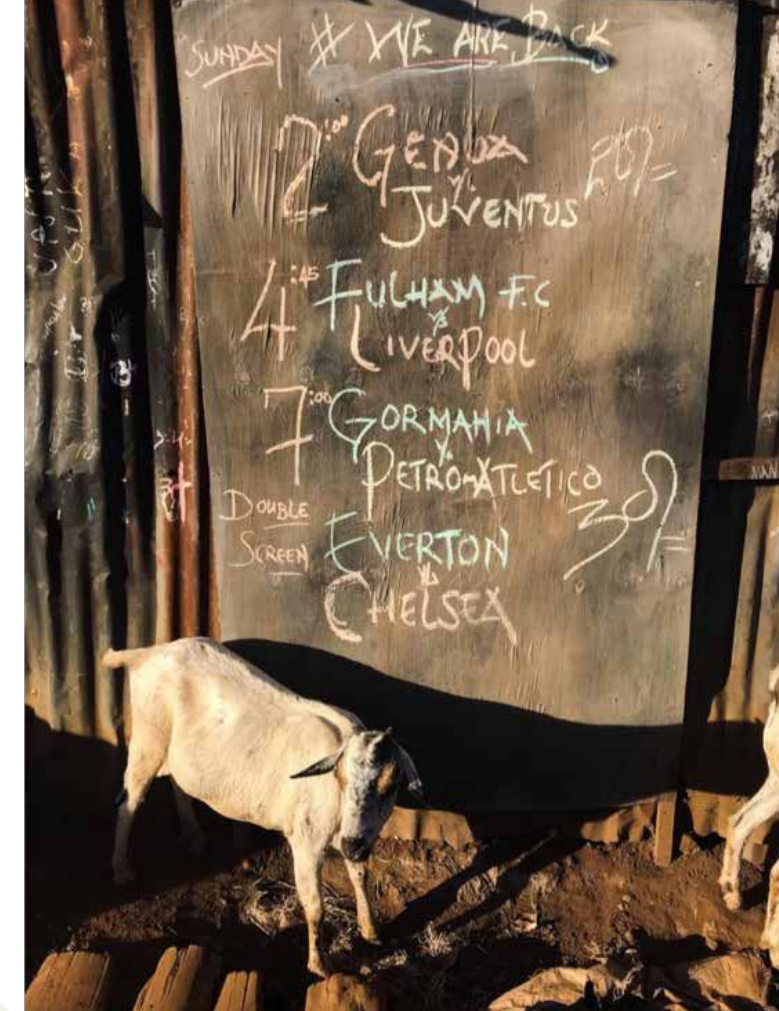 SUNDAY # WE ARE BACK
2:00 GENOA
Vs
JUVENTUS 20/=
4:45 FULHAM F.C
Vs
LIVERPOOL
7:00 GORMAHIA
Vs
PETRO-ATLETICO 30/=
DOUBLE
SCREEN EVERTON
Vs
CHELSEA